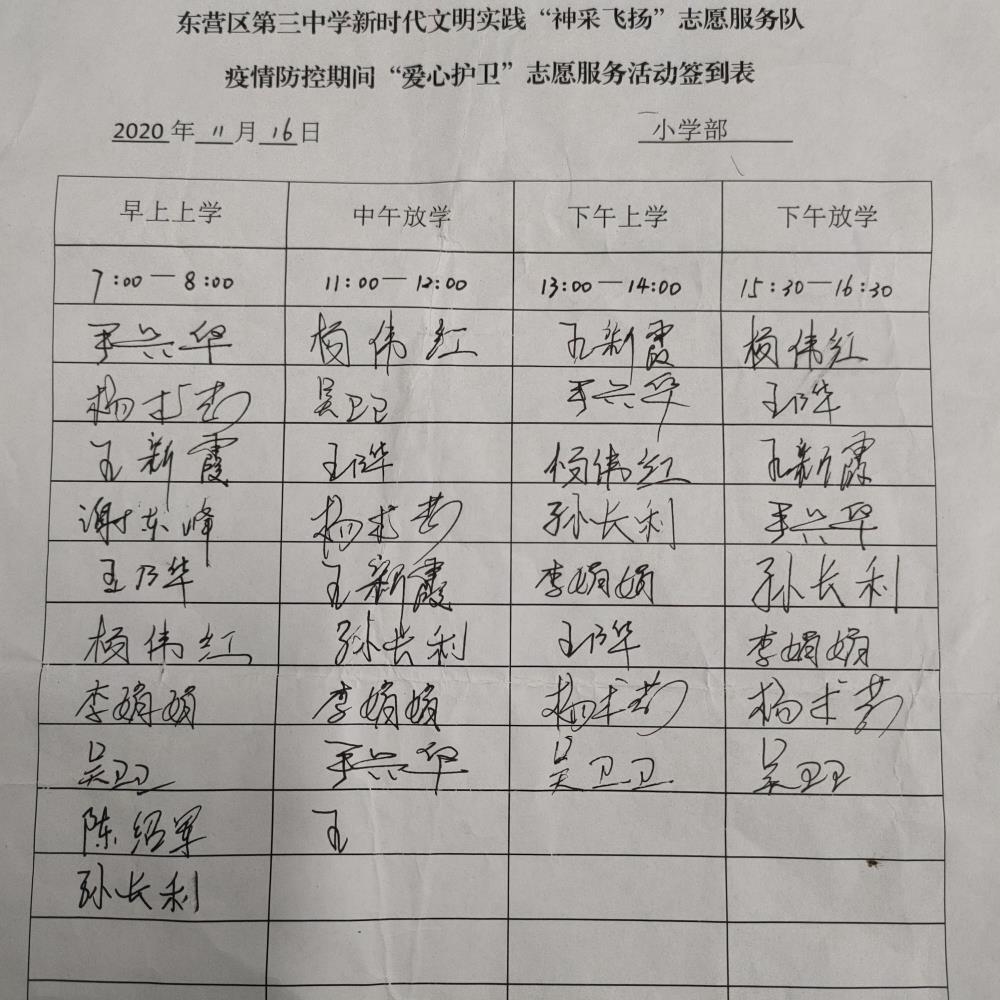 东营区第三中学新时代文明实践“神采飞扬”志愿服务队
疫情防控期间“爱心护卫”志愿服务活动签到表
2020 年 11 月 16 日 小学部
早上上学 中午放学 下午上学 下午放学
7:00—8:00 11:00—12:00 13:00—14:00 15:30—16:30
于兴华 杨伟红 王新霞 杨伟红
吴卫卫 于兴华 王乃华
王新霞 王乃华 杨伟红 王新霞
谢东峰 孙长利 于兴华
王乃华 王新霞 李娟娟 孙长利
杨伟红 孙长利 王乃华 李娟娟
李娟娟 李娟娟
吴卫卫 于兴华 吴卫卫 吴卫卫
陈绍军 王
孙长利